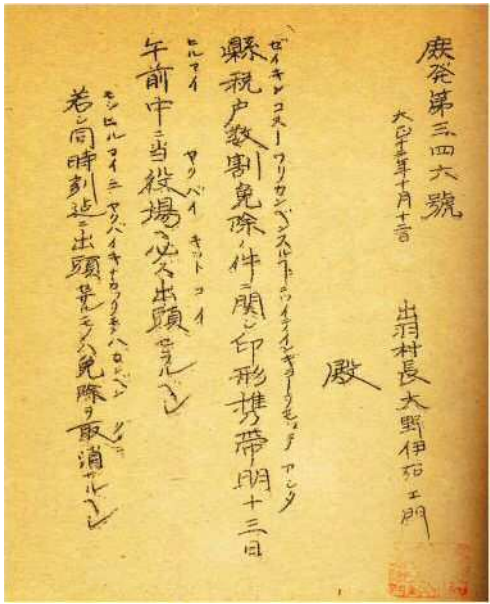 庶発第三四六號
大正十三年十月十二日
出羽村長 大野伊右エ門
殿
ゼイキンコスーワリカンベンスルコトニツイテインギョーヲモッテ アシタ
縣税戸数割免除ノ件ニ関シ印形携帯明十三日
ヒルマイ ヤクバイ キット コイ
午前中ニ当役場ヘ必ズ出頭セラルベシ
モシヒルマイニヤクバイキナカッタモノハカンベン
若シ同時刻迄ニ出頭セザルモノハ免除ヲ取消サルベシ